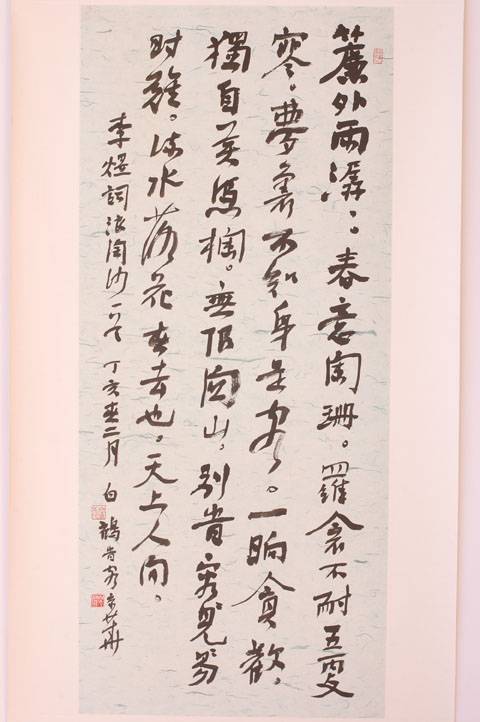 簾外雨潺:。春意闌珊。羅衾不耐五更
寒。夢裏不知身是客。一晌貪歡。
獨自莫憑欄。無限關山。別旹容見易
时難。流水落花春去也。天上人間。
李煜詞浪淘沙一首 丁亥春二月 白鶴旹客京華